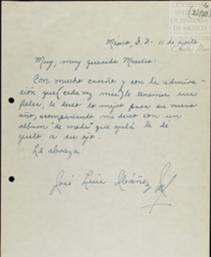 México, D. F. 11 de agosto
Muy, muy querido Maestro:
Con mucho cariño y con la admira-
ción que cada vez más le tenemos sus
fieles, le deseo lo mejor para su nuevo
año, acompañando mi deseo con un
album "de moda" que ojalá le dé
gusto a su ojo.
Lo abraza
José Luis Ibáñez